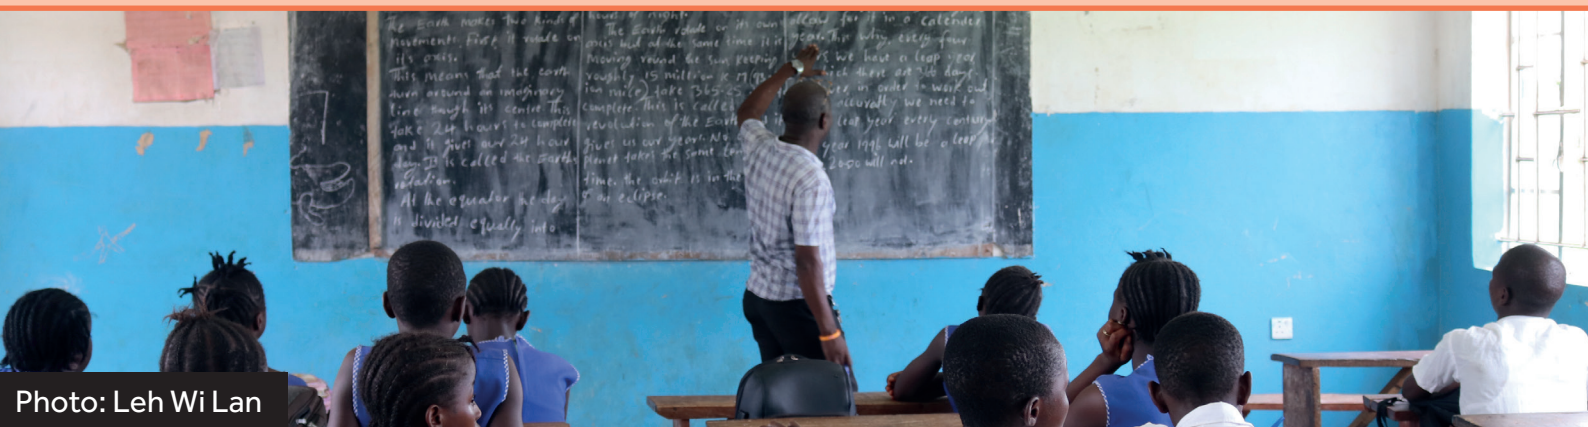 The Earth makes two kinds of
movements. First it rotate on
its axis.
This means that the earth
turn around an imaginary
line its centre This
take 24 hours to complete
and it gives our 24 hour
day. It is called the Earths
rotation.
At the equator the day
is divided equally into
hours of night.
The Earth rotate on its own
axis but at the same time it is
moving round the sun keeping
roughly 15 million K M
ion mile) take 365-25
complete. This is called
revolution of the Earth
gives us our year. No
planet takes the same
time. the orbit is in the
an eclipse.
allow for it in a calender
year. This why every four
we have a leap year
which there are 366 days
in order to work out
accuratly we need to
leap year every century
year 1996 will be a leap
2000 will not.
Photo: Leh Wi Lan